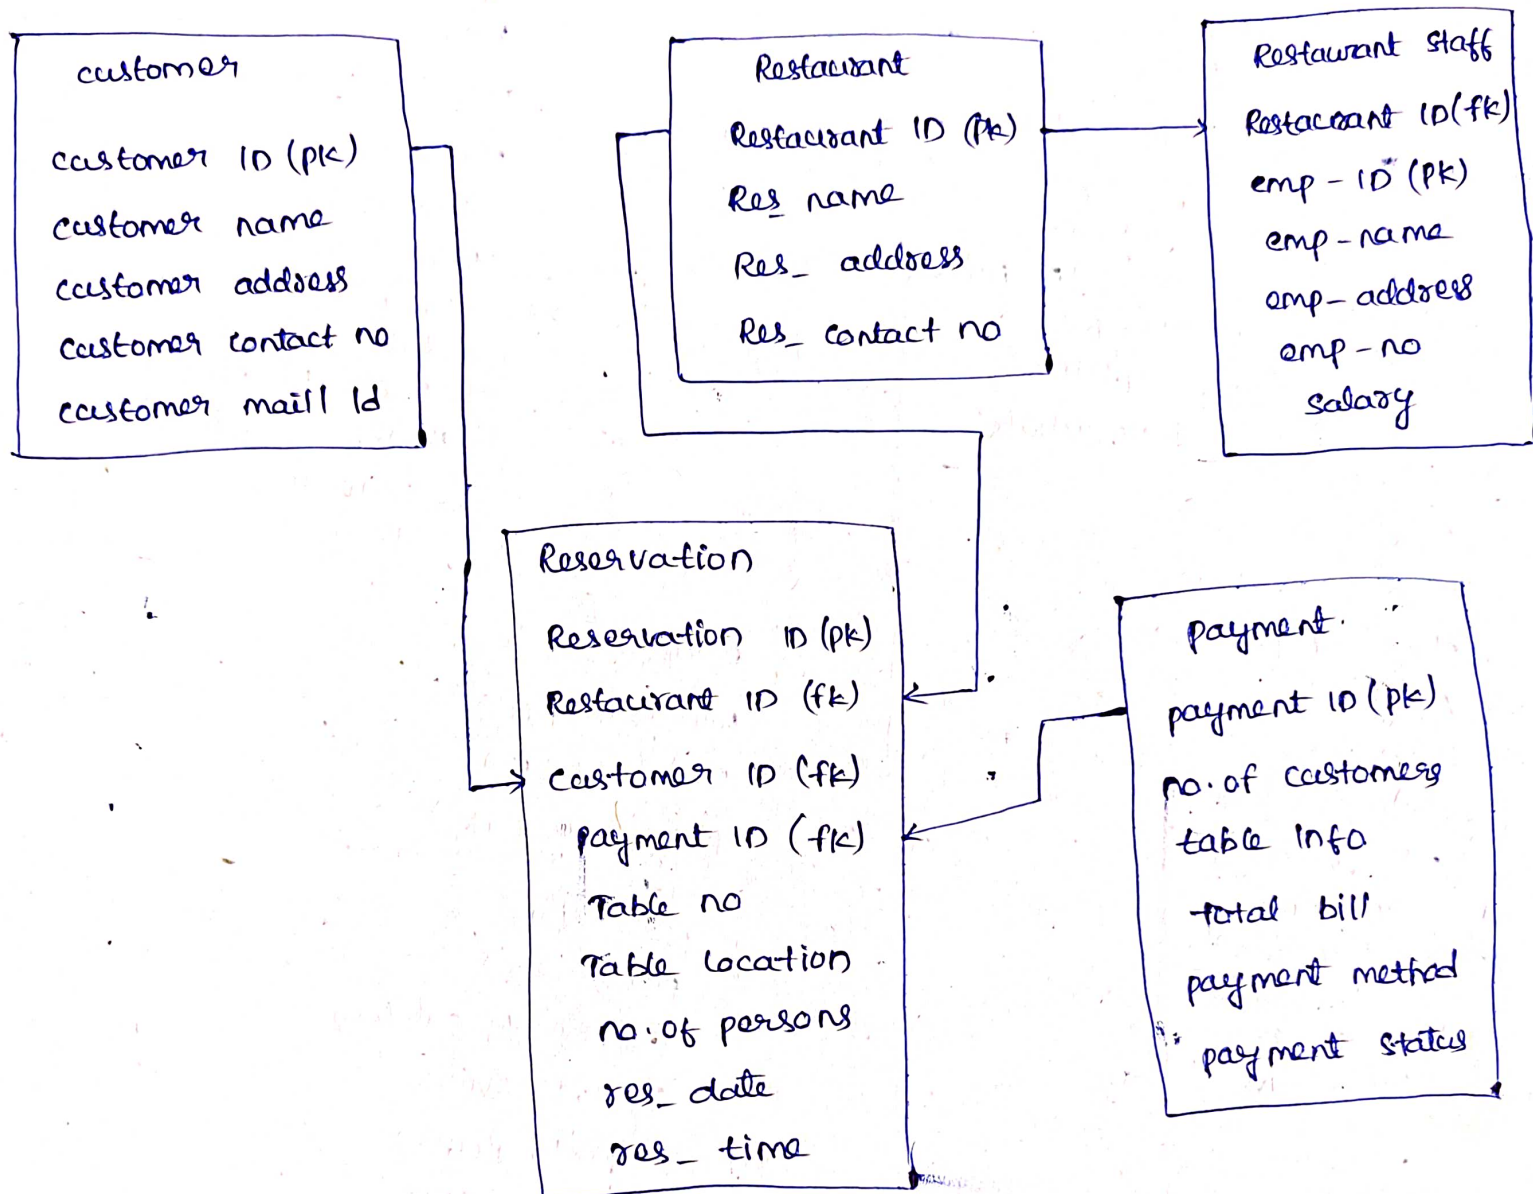 customer
customer ID (pk)
customer name
customer address
customer contact no
customer maill Id
Restaurant
Restaurant ID (pk)
Res_name
Res_ address
Res_ contact no
Restaurant staff
Restaurant ID(fk)
emp - ID (pk)
emp - name
emp - address
emp - no
salary
Reservation
Reservation ID (pk)
Restaurant ID (fk)
customer ID (fk)
payment ID (fk)
Table no
Table location
no. of persons
res_ date
res_ time
payment.
payment ID (pk)
no. of customers
table Info
total bill
payment method
payment status